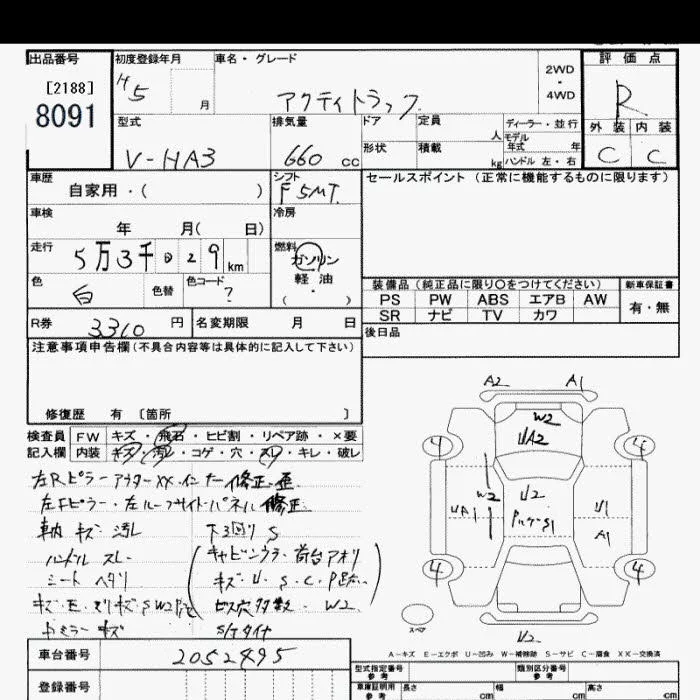 出品番号
[2188]
8091
初度登録年月
H5 月
車名・グレード
アクティトラック
2WD
・
4WD
評価点
R
外装 内装
C C
型式
V-HA3
排気量
660 cc
ドア
定員
人
ディーラー・並行
モデル
年式 年
形状
積載
kg
ハンドル 左・右
車歴
自家用・( )
シフト
F5MT
セールスポイント (正常に機能するものに限ります)
車検
年 月( 日)
冷房
走行
5万3千 029 km
燃料
ガソリン
軽油
・
( )
色
白
色替
色コード
?
装備品 (純正品に限り○をつけてください)
新車保証書
PS PW ABS エアB AW
有・無
SR ナビ TV カワ
R券
3310 円
名変期限 月 日
後日品
注意事項申告欄(不具合内容等は具体的に記入して下さい)
修復歴 有 〔箇所 〕
検査員
記入欄
FW キズ・飛石・ヒビ割・リペア跡・×要
内装 キズ・汚レ・コゲ・穴・スレ・キレ・破レ
左Rピラーアウター XX・インナー修正・歪
左Fピラー・左ルーフサイドパネル修正
車内キズ汚レ 下回り S
ハンドルスレ
キャビンウラ・荷台アオリ
シート ヘタリ
キズ・U・S・C・P
ビス穴多数・W2
キズ
A2 A1
W2
UA2
4 4
W2
U2
UA1
S1
U1
A1
4 4
スペア
U2
A-キズ E-エクボ U-凹み W-補修跡 S-サビ C-腐食 XX-交換済
車台番号
2052495
登録番号
型式指定番号
参考
類別区分番号
参考
車庫証明用
参考
長さ cm
幅 cm
高さ cm